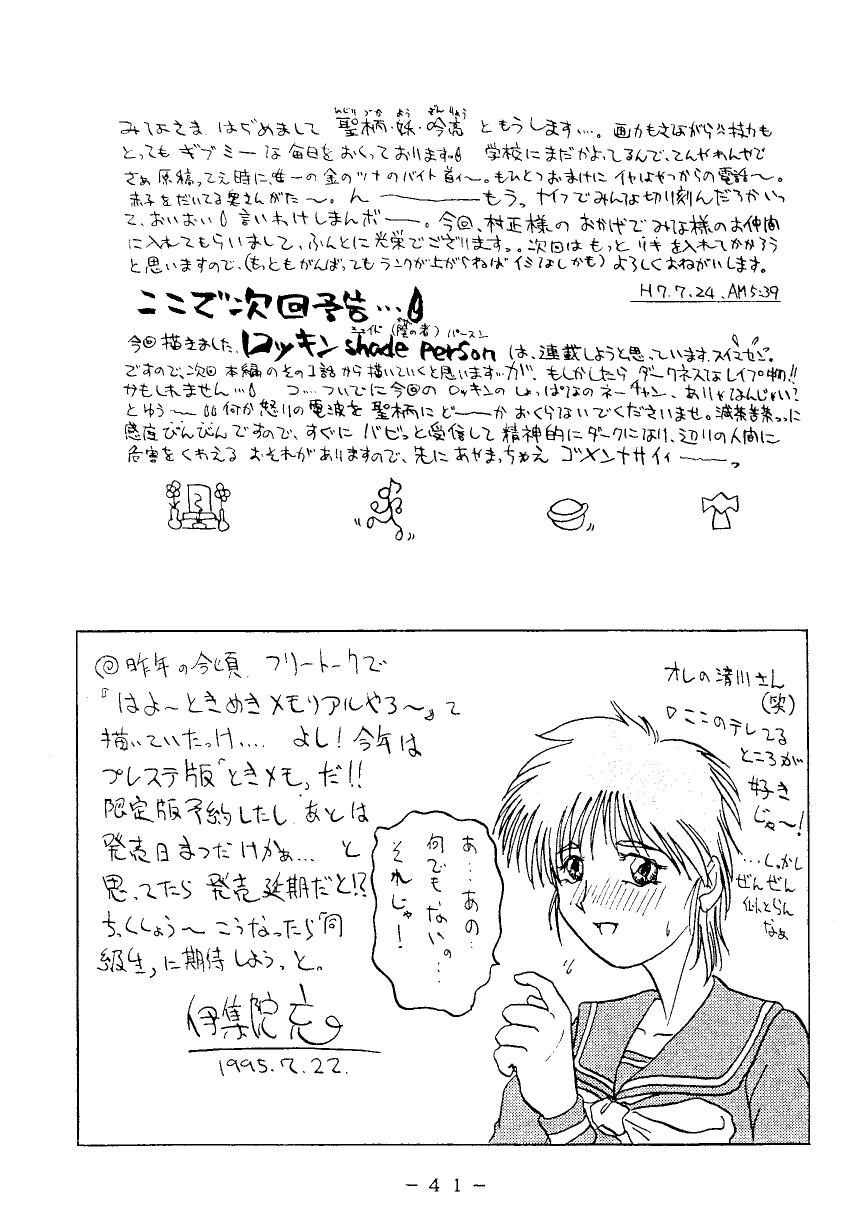 みなさま はぢめまして 聖柄・妖・吟亮 ともうします…。画力もさながら体力も
とっても ギブミーな毎日をおくっております 学校にまだかよってるんで、てんやわんやで
さぁ原稿ってえ時に、唯一の金のツナのバイト首ィ〜。もひとつおまけに イヤなやつからの電話〜。
赤子をだいてる奥さんがた〜。ん〜もうっ ナイフでみんな切り刻んだろかいっ
て、おいおい 言いわけしまんボ――。今回、村正様のおかげでみな様のお仲間
に入れてもらいまして、ふんとに光栄でございますっ。次回はもっとリキを入れてかかろう
と思いますので、(もっともがんばってもランクが上がらねばイミなしかも) よろしくおねがいします。
H7.7.24.AM5:39
ここで次回予告…
シェイド (陰の者) パースン
今回描きました、ロッキン shade person は、連載しようと思っています。スイマセン。
ですので、次回 本編のその1話から描いていくと思います…が、もしかしたら ダークネスなレイプ物!!
かもしれません… つ…ついでに今回の ロッキンのしょっぱなのネーチャン、ありゃなんじゃい?
とゆう〜 何か怒りの電波を聖柄にど――かおくらないでくださいませ。滅茶苦茶っっに
感度びんびんですので、すぐに バビッと受信して精神的にダークになり、辺りの人間に
危害をくわえる おそれがありますので、先にあやまっちゃえ ゴメンナサイィ――っ
◎昨年の今頃 フリートークで
『はよ〜ときめきメモリアルやろ〜』って
描いていたっけ…. よし!今年は
プレステ版「ときメモ」だ!!
限定版予約したし あとは
発売日まつだけかぁ… と
思ってたら 発売延期だと!?
ちっくしょう〜 こうなったら「同
級生」に期待しようっと。
伊集院 亮
1995.7.22.
あ…あの…
何でもないの…
それじゃ!
オレの清川さん
(笑)
ここのテレてる
ところが
好き
じゃ〜!
…しかし
ぜんぜん
似とらん
なぁ
－41－